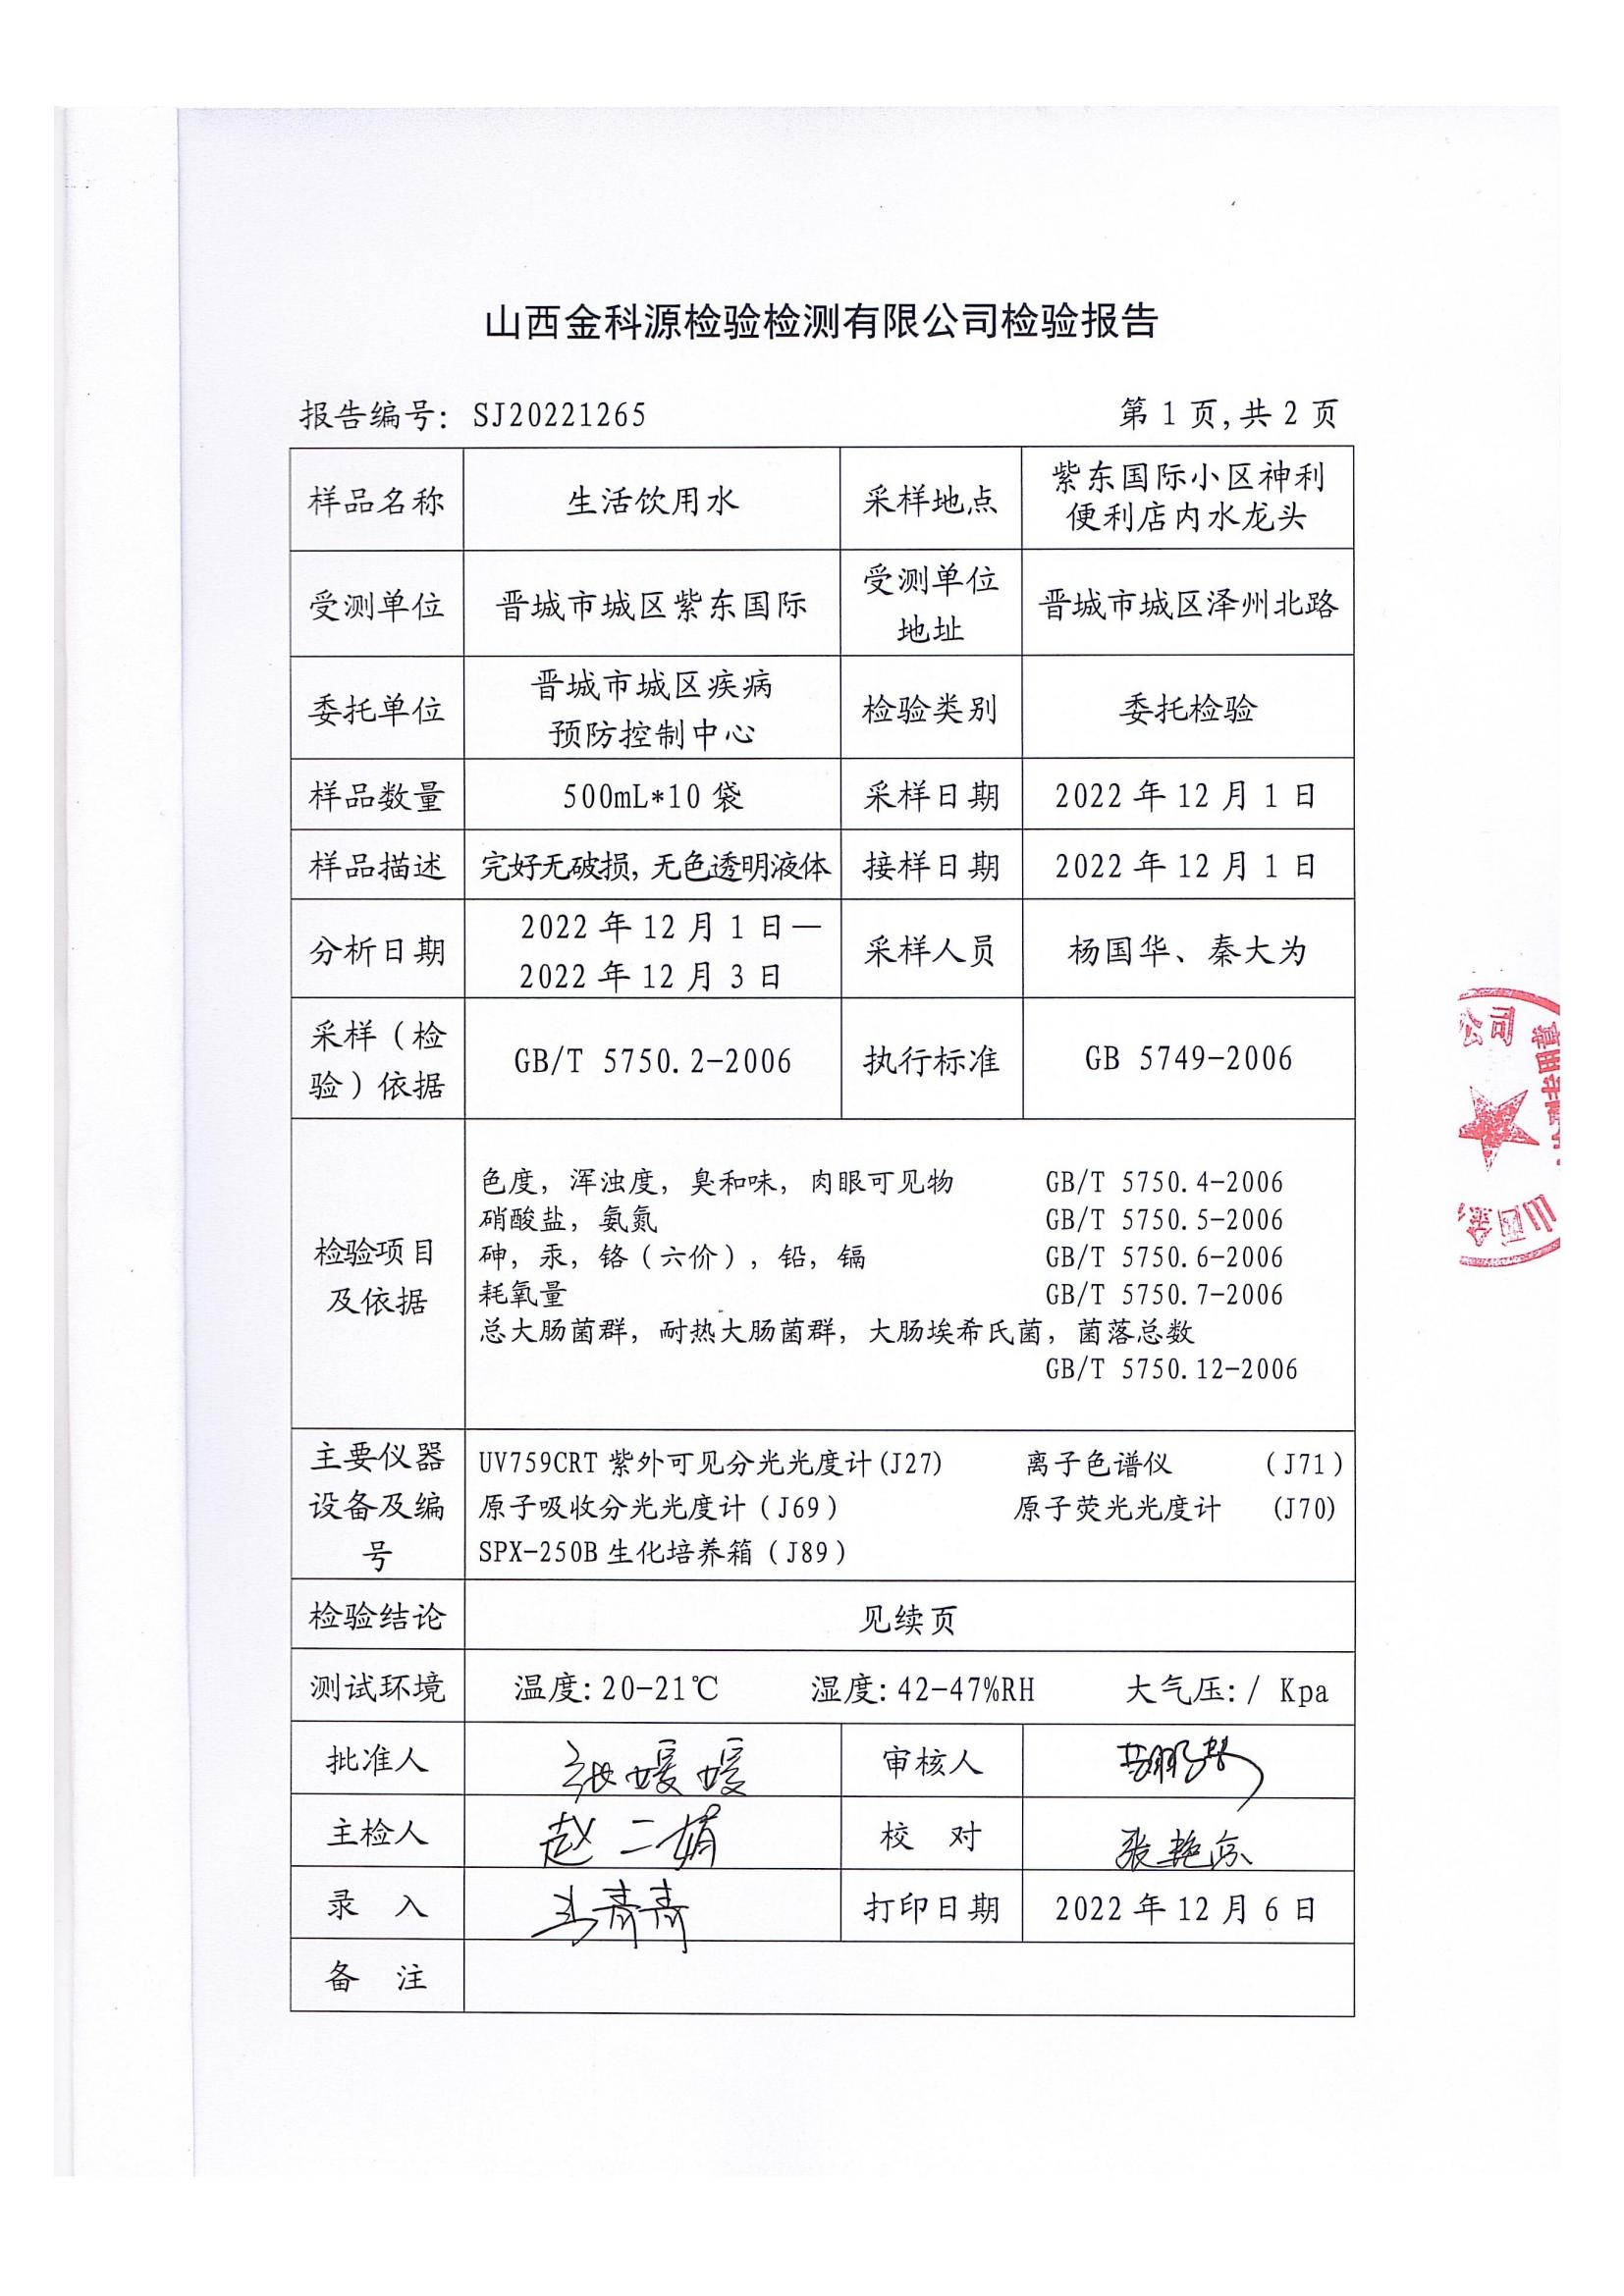 山西金科源检验检测有限公司检验报告
报告编号: SJ20221265
第 1 页,共 2 页
样品名称
生活饮用水
采样地点
紫东国际小区神利
便利店内水龙头
受测单位
晋城市城区紫东国际
受测单位
地址
晋城市城区泽州北路
委托单位
晋城市城区疾病
预防控制中心
检验类别
委托检验
样品数量
500mL*10 袋
采样日期
2022 年 12 月 1 日
样品描述
完好无破损, 无色透明液体
接样日期
2022 年 12 月 1 日
分析日期
2022 年 12 月 1 日—
2022 年 12 月 3 日
采样人员
杨国华、秦大为
采样（检
验）依据
GB/T 5750.2-2006
执行标准
GB 5749-2006
检验项目
及依据
色度, 浑浊度, 臭和味, 肉眼可见物 GB/T 5750.4-2006
硝酸盐, 氨氮 GB/T 5750.5-2006
砷, 汞, 铬（六价）, 铅, 镉 GB/T 5750.6-2006
耗氧量 GB/T 5750.7-2006
总大肠菌群, 耐热大肠菌群, 大肠埃希氏菌, 菌落总数
GB/T 5750.12-2006
主要仪器
设备及编
号
UV759CRT 紫外可见分光光度计(J27) 离子色谱仪 （J71）
原子吸收分光光度计（J69） 原子荧光光度计 (J70)
SPX-250B 生化培养箱（J89）
检验结论
见续页
测试环境
温度: 20-21℃ 湿度: 42-47%RH 大气压: / Kpa
批准人
张媛媛
审核人
主检人
赵二娟
校 对
张艳京
录 入
青青
打印日期
2022 年 12 月 6 日
备 注
公司
山西金